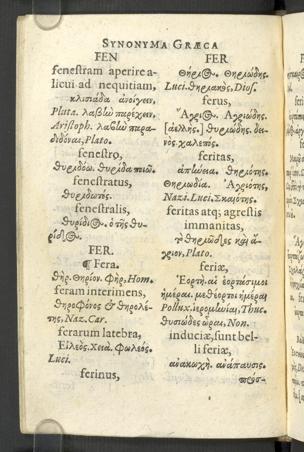 SYNONYMA GRÆCA
FEN
fenestram aperire a-
licui ad nequitiam,
κλισιάδα ἀνοίγειν,
Pluta. λαβὼ παρέχειν,
Aristoph. λαβὼ παρα-
διδόναι, Plato.
fenestro,
θυρδόω. θυρίδα ποιῶ.
fenestratus,
θυρδωτός.
fenestralis,
θυρίδι
ρίδος.
FER.
¶ Fera.
θήρ. θηρίον. φήρ, Hom.
feram interimens,
θηροφόνος & θηρολέ-
της, Naz. Car.
ferarum latebra,
Εἰλεός. χειά. φωλεός.
Luci.
ferinus,
FER
θήριος. θηριώδης.
Luci. θηριακὸς, Dios.
ferus,
Ἄγριος. Ἀγριώδης.
δει-
νὸς. χαλεπός.
feritas,
θηριότης.
θηριωδία. Ἀγριότης,
Naz. Luci. Σκαιότης.
feritas atq; agrestis
immanitas,
τὸ θηριῶδες καὶ ἄ-
γριον, Plato.
feriæ,
Ἑορτή. αἱ ἑορτάσιμοι
ἡμέραι. μεθέορτοι ἡμέραι
Pollux. ἱερομηνίαι, Thuc.
ὧραι, Non.
induciæ, sunt bel-
li feriæ,
ἀνακωχή. ἀνάπαυσις.